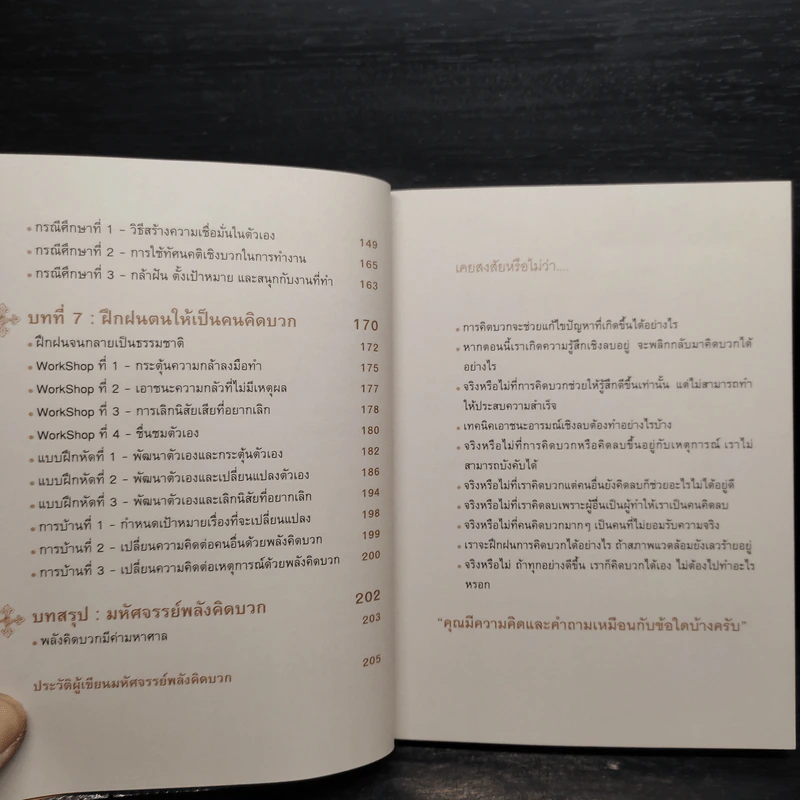 • กรณีศึกษาที่ 1 - วิธีสร้างความเชื่อมั่นในตัวเอง 149
• กรณีศึกษาที่ 2 - การใช้ทัศนคติเชิงบวกในการทำงาน 165
• กรณีศึกษาที่ 3 - กล้าฝัน ตั้งเป้าหมาย และสนุกกับงานที่ทำ 163
บทที่ 7 : ฝึกฝนตนให้เป็นคนคิดบวก 170
• ฝึกฝนจนกลายเป็นธรรมชาติ 172
• WorkShop ที่ 1 - กระตุ้นความกล้าลงมือทำ 175
• WorkShop ที่ 2 - เอาชนะความกลัวที่ไม่มีเหตุผล 177
• WorkShop ที่ 3 - การเลิกนิสัยเสียที่อยากเลิก 178
• WorkShop ที่ 4 - ชื่นชมตัวเอง 180
• แบบฝึกหัดที่ 1 - พัฒนาตัวเองและกระตุ้นตัวเอง 182
• แบบฝึกหัดที่ 2 - พัฒนาตัวเองและเปลี่ยนแปลงตัวเอง 186
• แบบฝึกหัดที่ 3 - พัฒนาตัวเองและเลิกนิสัยที่อยากเลิก 194
• การบ้านที่ 1 - กำหนดเป้าหมายเรื่องที่จะเปลี่ยนแปลง 198
• การบ้านที่ 2 - เปลี่ยนความคิดต่อคนอื่นด้วยพลังคิดบวก 199
• การบ้านที่ 3 - เปลี่ยนความคิดต่อเหตุการณ์ด้วยพลังคิดบวก 200
บทสรุป : มหัศจรรย์พลังคิดบวก 202
• พลังคิดบวกมีค่ามหาศาล 203
ประวัติผู้เขียนมหัศจรรย์พลังคิดบวก 205
เคยสงสัยหรือไม่ว่า....
• การคิดบวกจะช่วยแก้ไขปัญหาที่เกิดขึ้นได้อย่างไร
• หากตอนนี้เราเกิดความรู้สึกเชิงลบอยู่ จะพลิกกลับมาคิดบวกได้
อย่างไร
• จริงหรือไม่ที่การคิดบวกช่วยให้รู้สึกดีขึ้นเท่านั้น แต่ไม่สามารถทำ
ให้ประสบความสำเร็จ
• เทคนิคเอาชนะอารมณ์เชิงลบต้องทำอย่างไรบ้าง
• จริงหรือไม่ที่การคิดบวกหรือคิดลบขึ้นอยู่กับเหตุการณ์ เราไม่
สามารถบังคับได้
• จริงหรือไม่ที่เราคิดบวกแต่คนอื่นยังคิดลบก็ช่วยอะไรไม่ได้อยู่ดี
• จริงหรือไม่ที่เราคิดลบเพราะผู้อื่นเป็นผู้ทำให้เราเป็นคนคิดลบ
• จริงหรือไม่ที่คนคิดบวกมากๆ เป็นคนที่ไม่ยอมรับความจริง
• เราจะฝึกฝนการคิดบวกได้อย่างไร ถ้าสภาพแวดล้อมยังเลวร้ายอยู่
• จริงหรือไม่ ถ้าทุกอย่างดีขึ้น เราก็คิดบวกได้เอง ไม่ต้องไปทำอะไร
หรอก
"คุณมีความคิดและคำถามเหมือนกับข้อใดบ้างครับ"